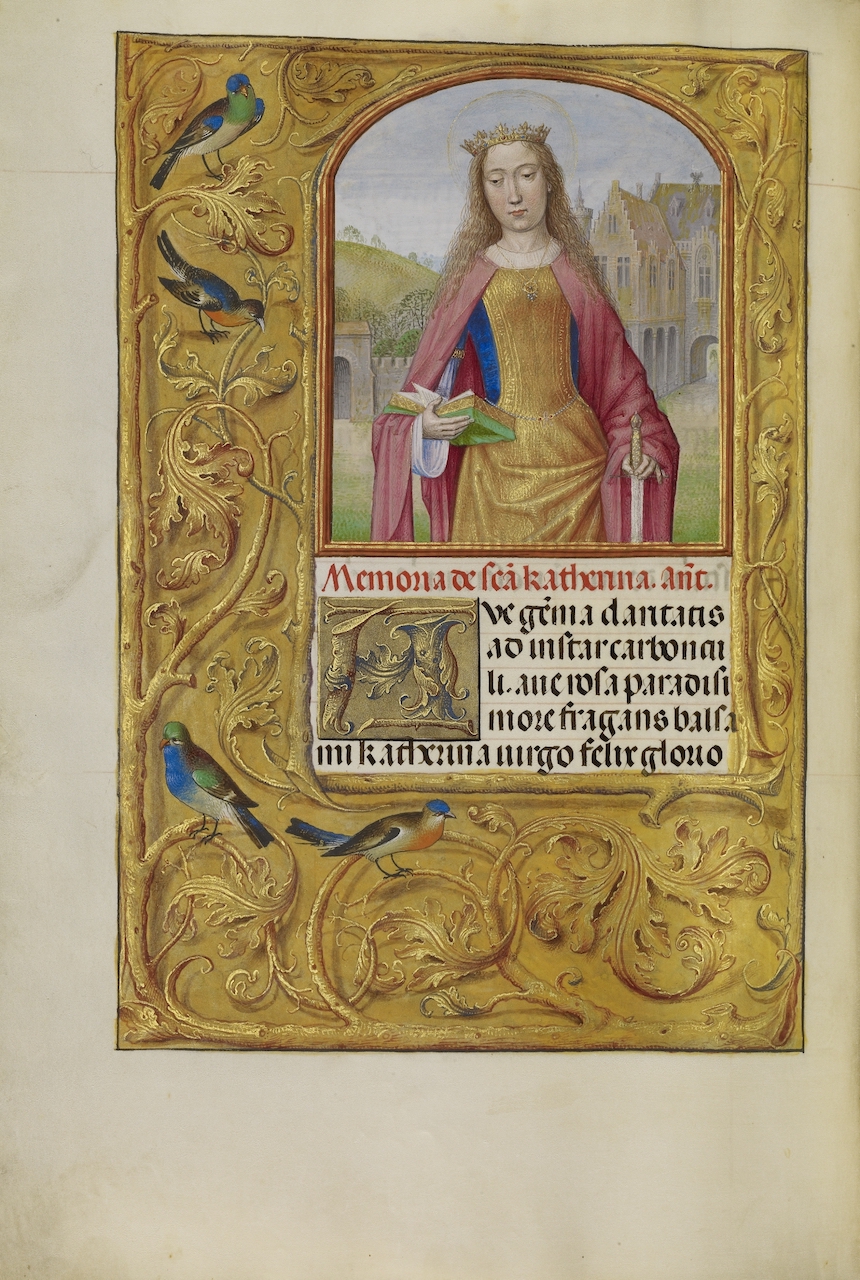 Memoria de scā katherina. Añt.
AVe gēma claritatis
ad instar carboncu
li. aue rosa paradisi
more fragans balsa
mi katherina uirgo felix glorio